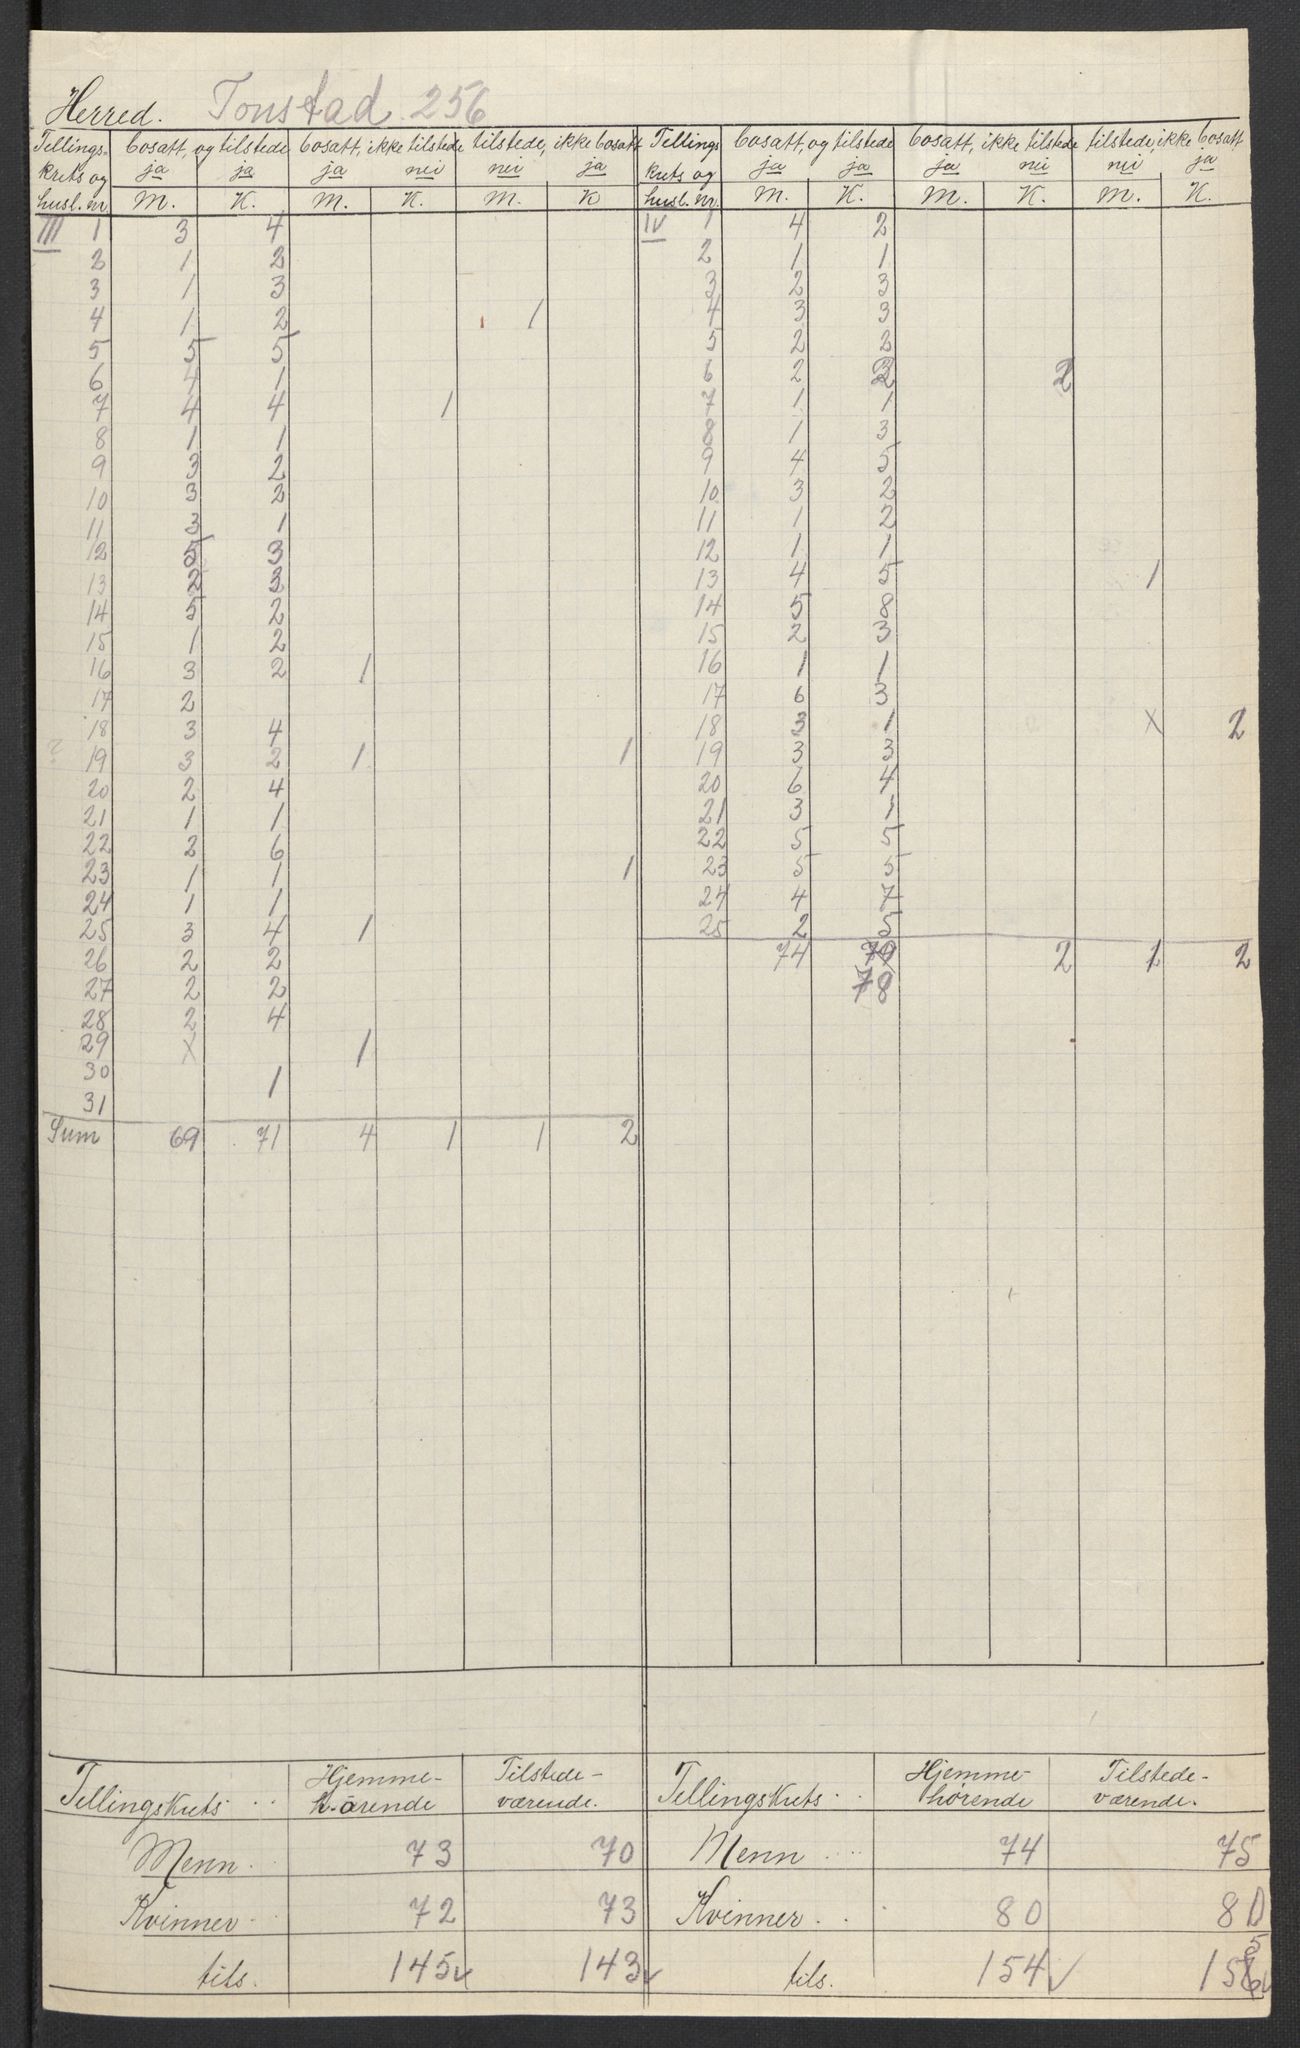 Herred. Tonstad 256
Tellings- bosatt, og tilstede bosatt, ikke tilstede tilstede, ikke bosatt Tellings bosatt, og tilstede bosatt, ikke tilstede tilstede, ikke bosatt
krets og ja ja ja nei nei ja krets og ja ja ja nei nei ja
husl. nr M. K. M. K. M. K husl. nr. M. K. M. K. M. K.
III 1 3 4 IV 1 4 2
2 1 2 2 1 1
3 1 3 3 2 3
4 1 2 1 4 3 3
5 5 5 5 2 2
6 4 1 6 2 2 2
7 4 4 1 7 1 1
8 1 1 8 1 3
9 3 2 9 4 5
10 3 2 10 3 2
11 3 1 11 1 2
12 5 3 12 1 1
13 2 3 13 4 5 1
14 5 2 14 5 8
15 1 2 15 2 3
16 3 2 1 16 1 1
17 2 17 6 3
18 3 4 18 3 1 X 2
? 19 3 2 1 1 19 3 3
20 2 4 20 6 4
21 1 1 21 3 1
22 2 6 22 5 5
23 1 1 1 23 5 5
24 1 1 24 4 7
25 3 4 1 25 2 5
26 2 2 74 79 2 1 2
27 2 2 78
28 2 4
29 X 1
30 1
31
Sum 69 71 4 1 1 2
Tellingskrets . . Hjemme-hørende Tilstede-værende. Tellingskrets . . Hjemme-hørende Tilstede-værende.
Menn . 73 70 Menn . . . 74 75
Kvinner . . 72 73 Kvinner . . . 80 80
tils. 145 ✓ 143 ✓ tils. 154 ✓ 156 5 ✓